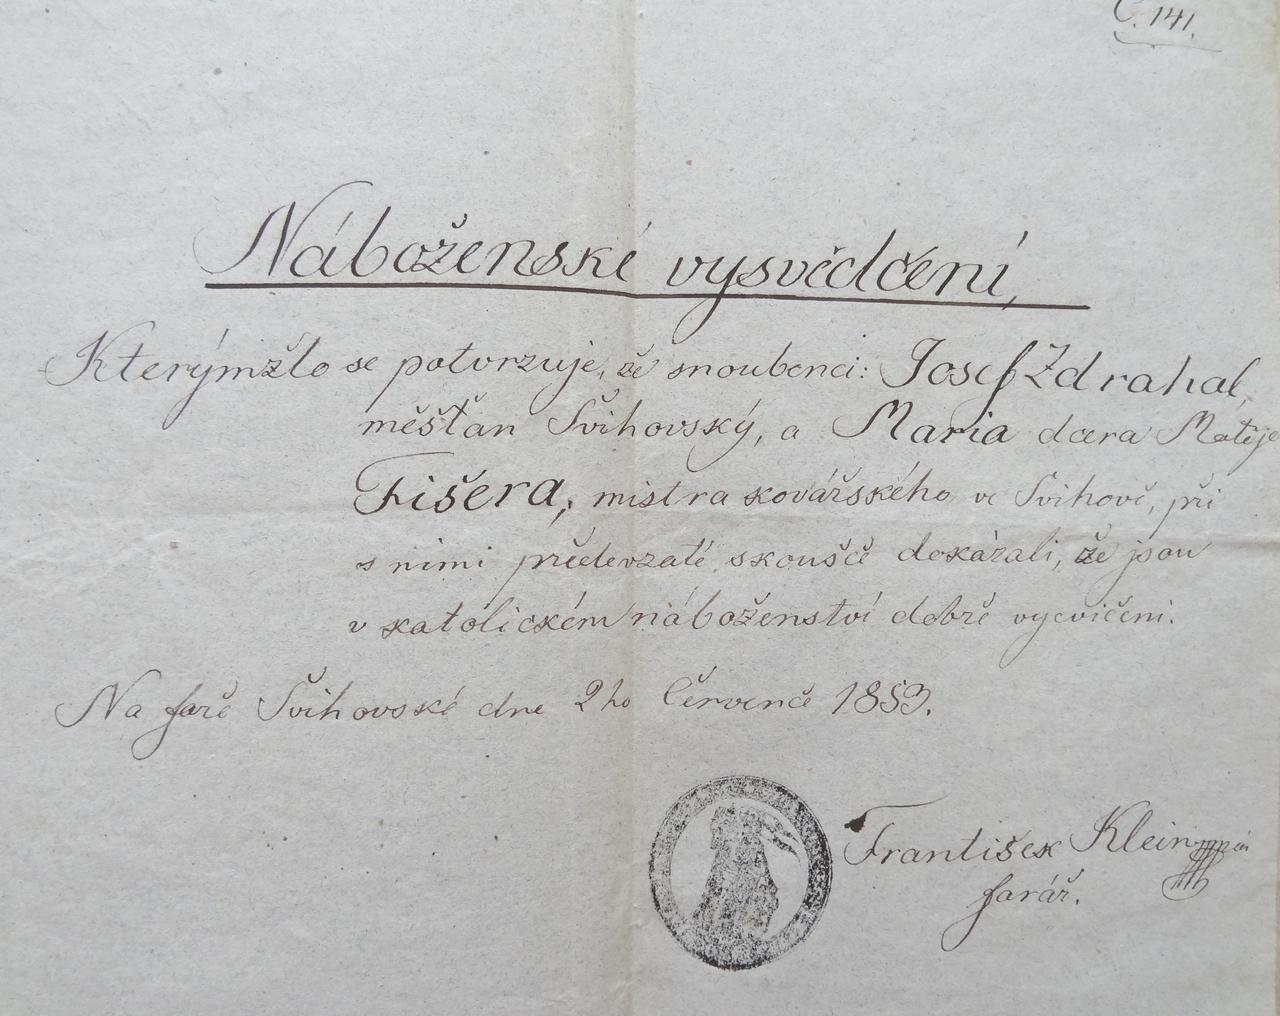 Č. 141.
Náboženské vysvědčení,
Kterýmžto se potvrzuje, že snoubenci: Josef Zdrahal,
měšťan Švihovský, a Maria dcera Matěje
Fišera, mistra kovářského ve Švihově, při
s nimi předevzaté skoušče dokázali, že jsou
v katolickém náboženství dobře vycvičeni.
Na faře Švihovské dne 2ho Července 1853.
František Klein
farář.